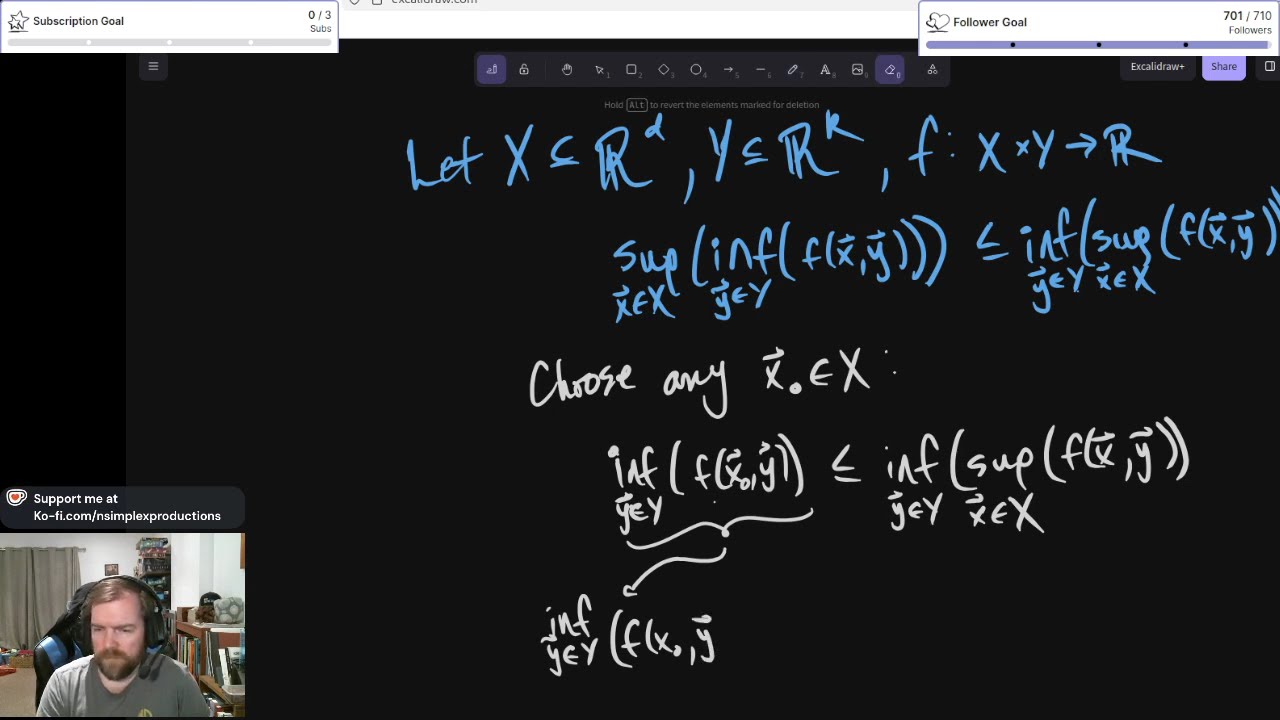 excalidraw.com
Subscription Goal 0 / 3 Subs
Follower Goal 701 / 710 Followers
1 2 3 4 5 6 7 A 8 9 0
Excalidraw+ Share
Hold Alt to revert the elements marked for deletion
Let X ⊆ ℝ^d, Y ⊆ ℝ^k, f: X × Y → ℝ
sup_{x⃗∈X} (inf_{y⃗∈Y} (f(x⃗, y⃗))) ≤ inf_{y⃗∈Y} (sup_{x⃗∈X} (f(x⃗, y⃗))
Choose any x⃗₀ ∈ X :
inf_{y⃗∈Y} (f(x⃗₀, y⃗)) ≤ inf_{y⃗∈Y} (sup_{x⃗∈X} (f(x⃗, y⃗))
inf_{y⃗∈Y} (f(x₀, y⃗
Support me at
Ko-fi.com/nsimplexproductions